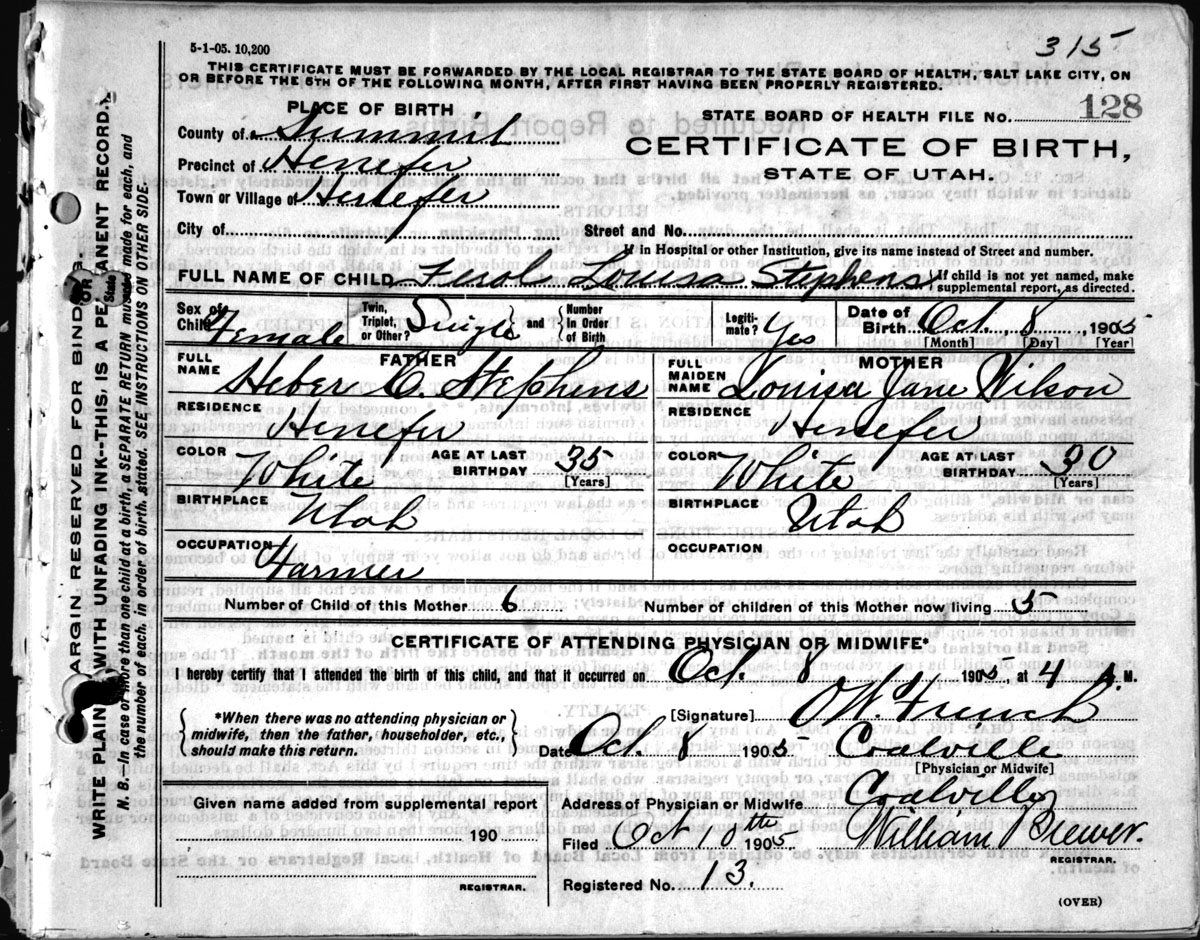 5-1-05. 10,200
315
THIS CERTIFICATE MUST BE FORWARDED BY THE LOCAL REGISTRAR TO THE STATE BOARD OF HEALTH, SALT LAKE CITY, ON
OR BEFORE THE 5TH OF THE FOLLOWING MONTH, AFTER FIRST HAVING BEEN PROPERLY REGISTERED.
PLACE OF BIRTH
STATE BOARD OF HEALTH FILE NO. 128
County of Summit
CERTIFICATE OF BIRTH,
Precinct of Henefer
STATE OF UTAH.
Town or Village of Henefer
City of Street and No.
If in Hospital or other Institution, give its name instead of Street and number.
FULL NAME OF CHILD Ferol Louisa Stephens {If child is not yet named, make
supplemental report, as directed.
Sex of Child Female
Twin, Triplet, or Other? Single and {Number In Order of Birth
Legiti-mate? Yes
Date of Birth Oct. 8, 1905
[Month] [Day] [Year]
FATHER
FULL NAME Heber C. Stephens
MOTHER
FULL MAIDEN NAME Louisa Jane Wilson
RESIDENCE Henefer
RESIDENCE Henefer
COLOR White AGE AT LAST BIRTHDAY 35 [Years]
COLOR White AGE AT LAST BIRTHDAY 30 [Years]
BIRTHPLACE Utah
BIRTHPLACE Utah
OCCUPATION Farmer
OCCUPATION
Number of Child of this Mother 6 Number of children of this Mother now living 5
CERTIFICATE OF ATTENDING PHYSICIAN OR MIDWIFE*
I hereby certify that I attended the birth of this child, and that it occurred on Oct. 8 1905, at 4 A.M.
{*When there was no attending physician or
midwife, then the father, householder, etc.,
should make this return.}
[Signature] O W. French
Date Oct. 8 1905 Coalville
[Physician or Midwife]
Given name added from supplemental report
190
REGISTRAR.
Address of Physician or Midwife Coalville
Filed Oct 10th 1905 William Brewer.
REGISTRAR.
Registered No. 13.
(OVER)
MARGIN RESERVED FOR BINDING.
WRITE PLAINLY WITH UNFADING INK--THIS IS A PERMANENT RECORD.
N. B.—In case of more than one child at a birth, a SEPARATE RETURN must be made for each, and
the number of each, in order of birth, stated. SEE INSTRUCTIONS ON OTHER SIDE.